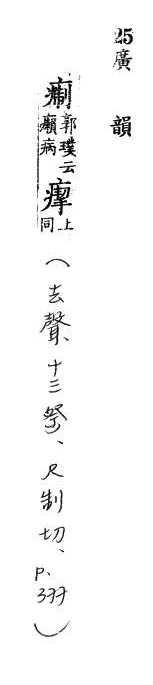 25廣韻
痸郭璞云病上同(去聲、十三祭、尺制切、p.377)